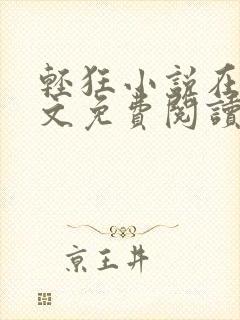 輕狂小說在
文免費閱讀
京王井